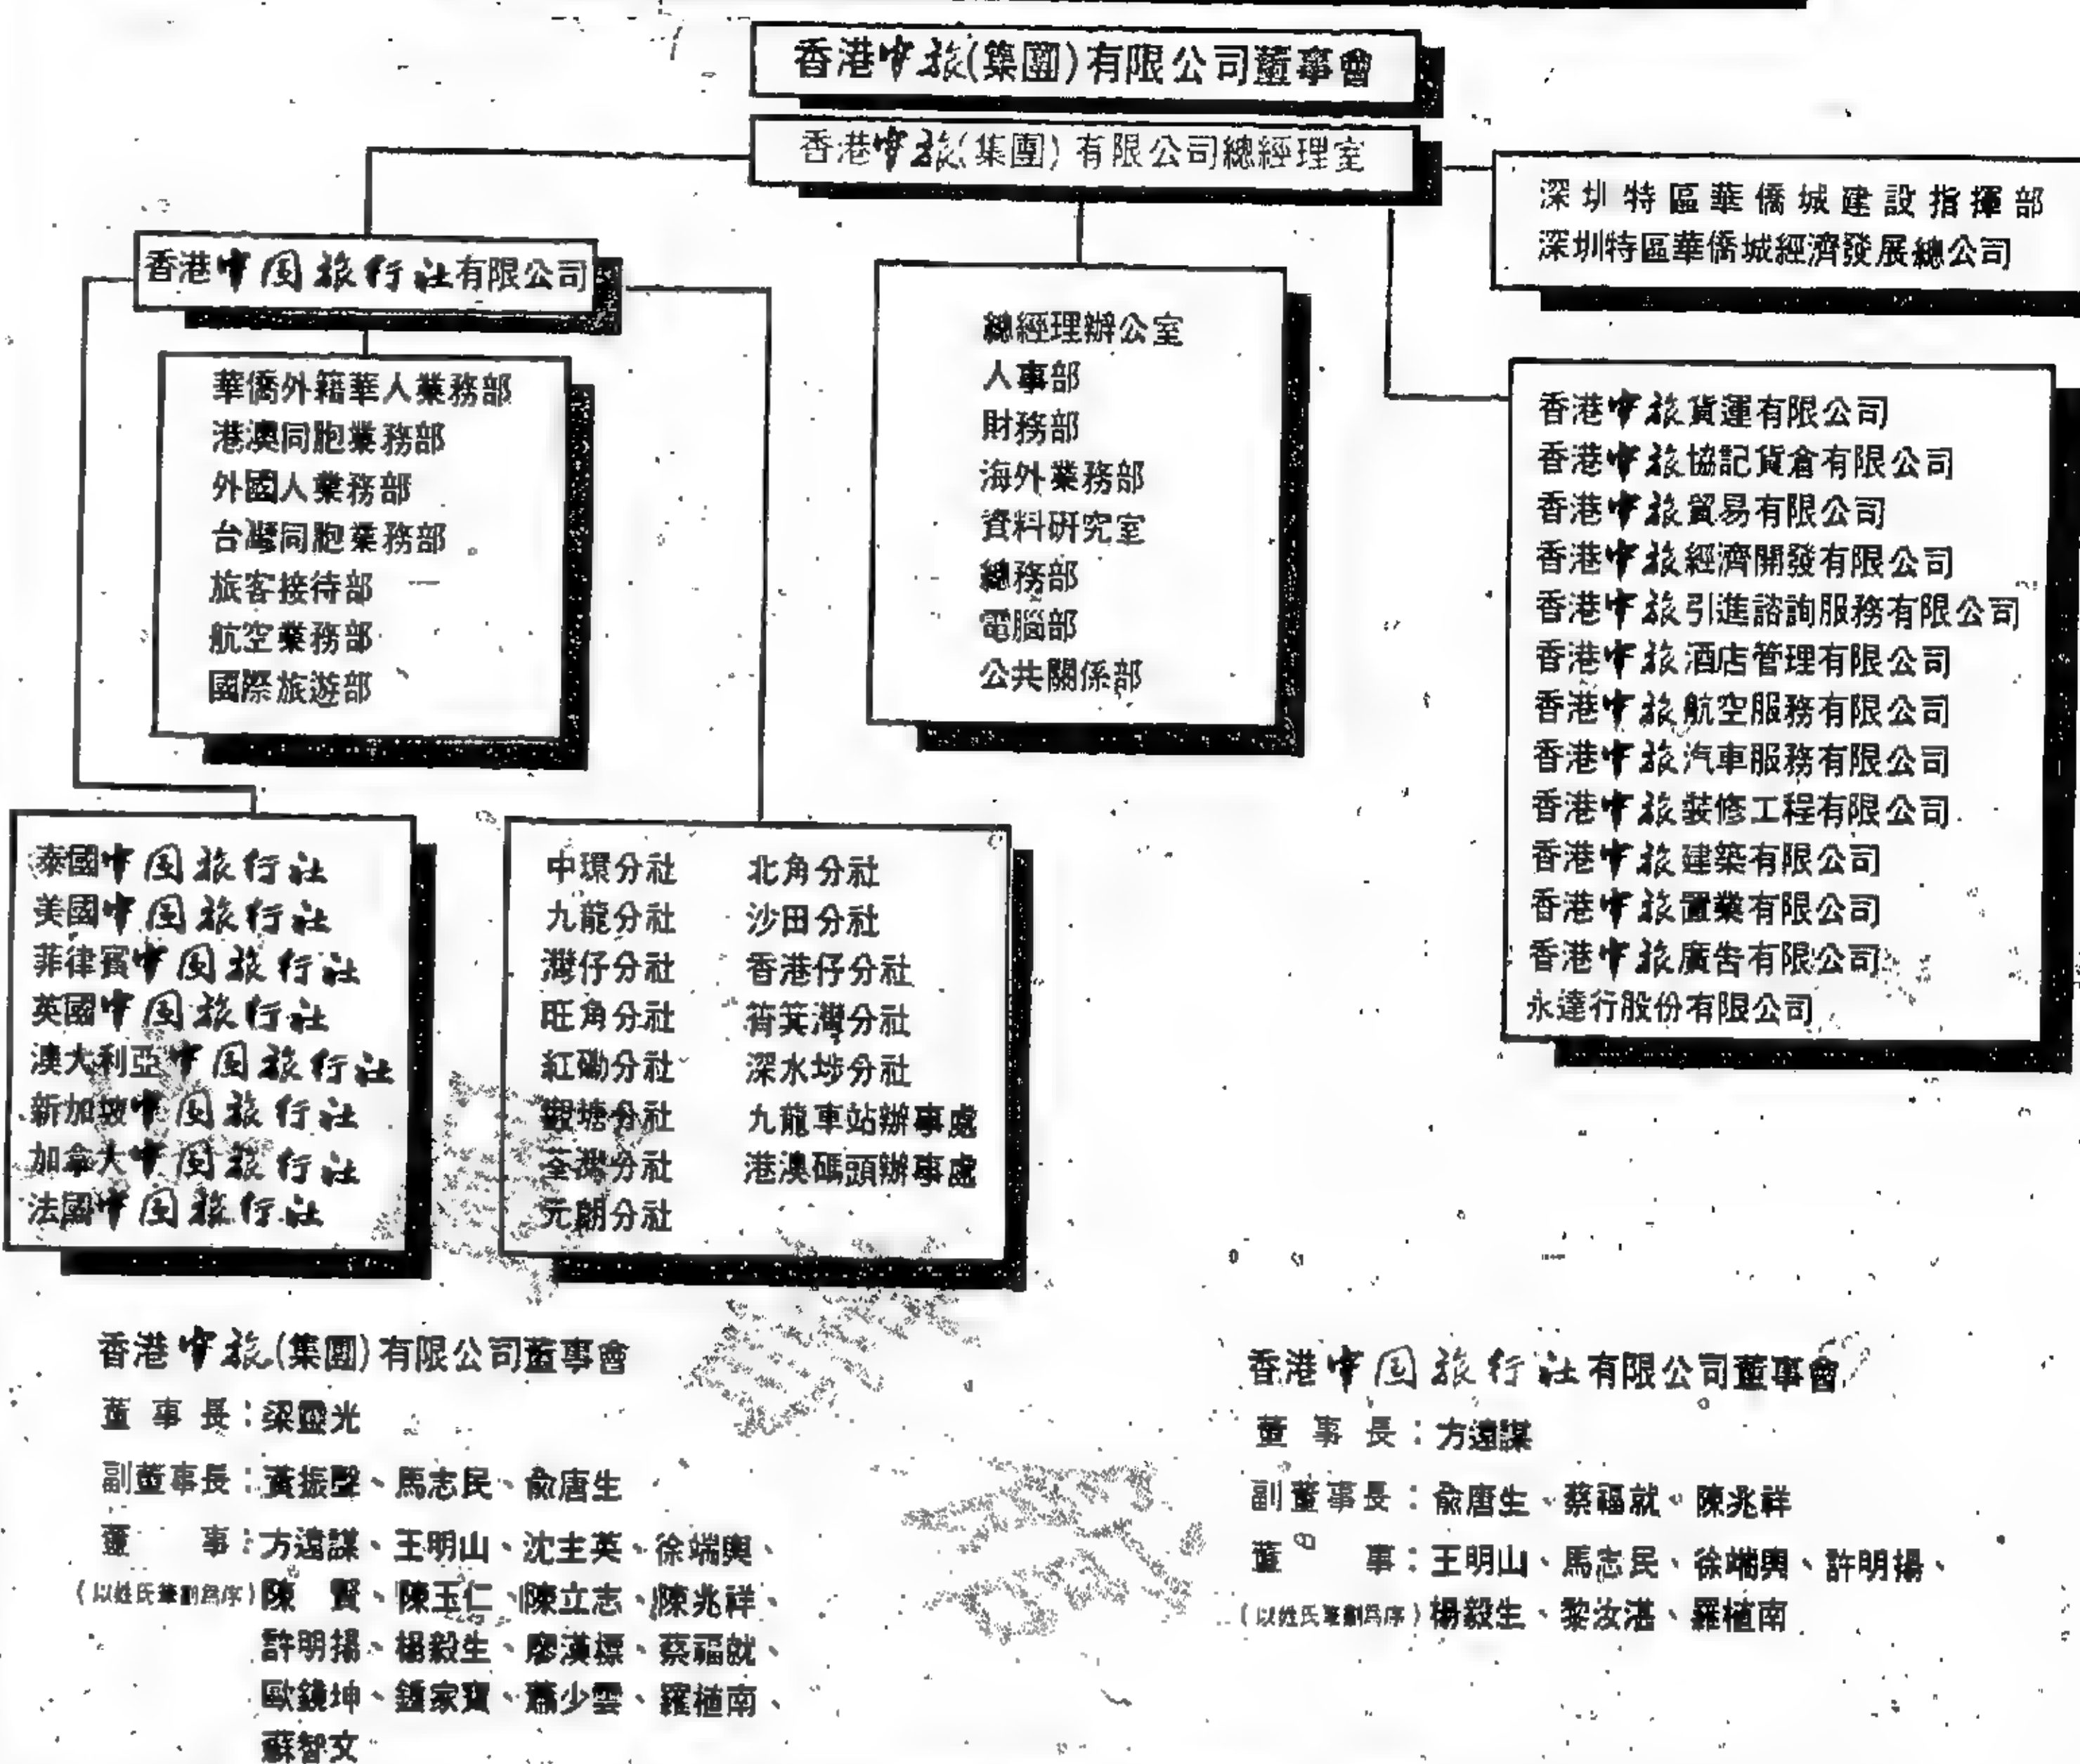 香港中旅(集團)有限公司董事會
香港中旅(集團)有限公司總經理室
深圳特區華僑城建設指揮部
深圳特區華僑城經濟發展總公司
香港中国旅行社有限公司
華僑外籍華人業務部
港澳同胞業務部
外國人業務部
台灣同胞業務部
旅客接待部
航空業務部
國際旅遊部
總經理辦公室
人事部
財務部
海外業務部
資料研究室
總務部
電腦部
公共關係部
香港中旅貨運有限公司
香港中旅協記貨倉有限公司
香港中旅貿易有限公司
香港中旅經濟開發有限公司
香港中旅引進諮詢服務有限公司
香港中旅酒店管理有限公司
香港中旅航空服務有限公司
香港中旅汽車服務有限公司
香港中旅裝修工程有限公司
香港中旅建築有限公司
香港中旅置業有限公司
香港中旅廣告有限公司
永達行股份有限公司
泰國中国旅行社
美國中国旅行社
菲律賓中国旅行社
英國中国旅行社
澳大利亞中国旅行社
新加坡中国旅行社
加拿大中国旅行社
法國中国旅行社
中環分社 北角分社
九龍分社 沙田分社
灣仔分社 香港仔分社
旺角分社 筲箕灣分社
紅磡分社 深水埗分社
觀塘分社 九龍車站辦事處
荃灣分社 港澳碼頭辦事處
元朗分社
香港中旅(集團)有限公司董事會
董事長：梁靈光
副董事長：黃振聲、馬志民、俞唐生
董事：方遠謀、王明山、沈主英、徐端輿、
(以姓氏筆劃為序)陳賢、陳玉仁、陳立志、陳兆祥、
許明揚、楊毅生、廖漢標、蔡福就、
歐鏡坤、鍾家寶、蕭少雲、羅植南、
蘇智文
香港中国旅行社有限公司董事會
董事長：方遠謀
副董事長：俞唐生、蔡福就、陳兆祥
董事：王明山、馬志民、徐端輿、許明揚、
(以姓氏筆劃為序)楊毅生、黎汝湛、羅植南